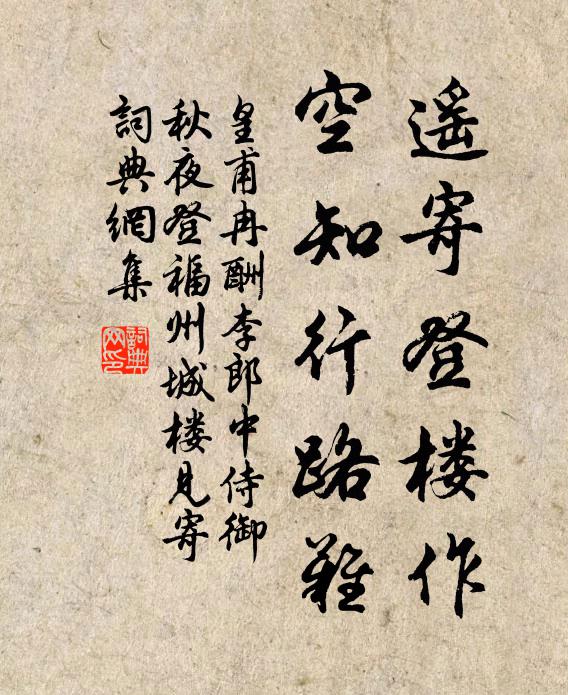 遥寄登楼作
空知行路难
皇甫冉酬李郎中侍御
秋夜登福州城楼见寄
詞典網集
詞典网印